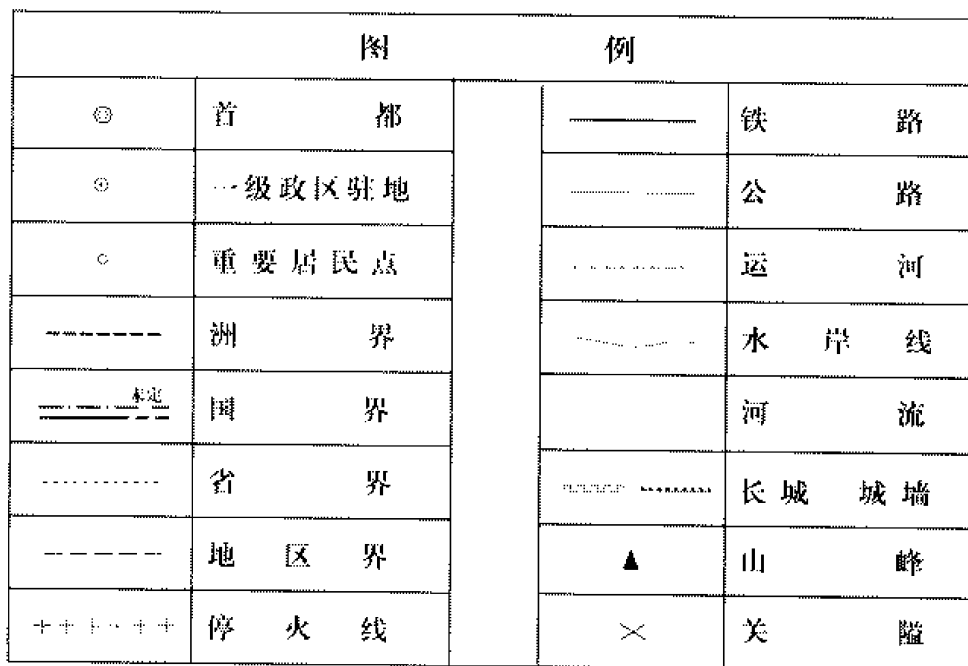 图 例
首 都
一级政区驻地
重要居民点
洲 界
未定
国 界
省 界
地 区 界
停 火 线
铁 路
公 路
运 河
水 岸 线
河 流
长城 城墙
山 峰
关 隘